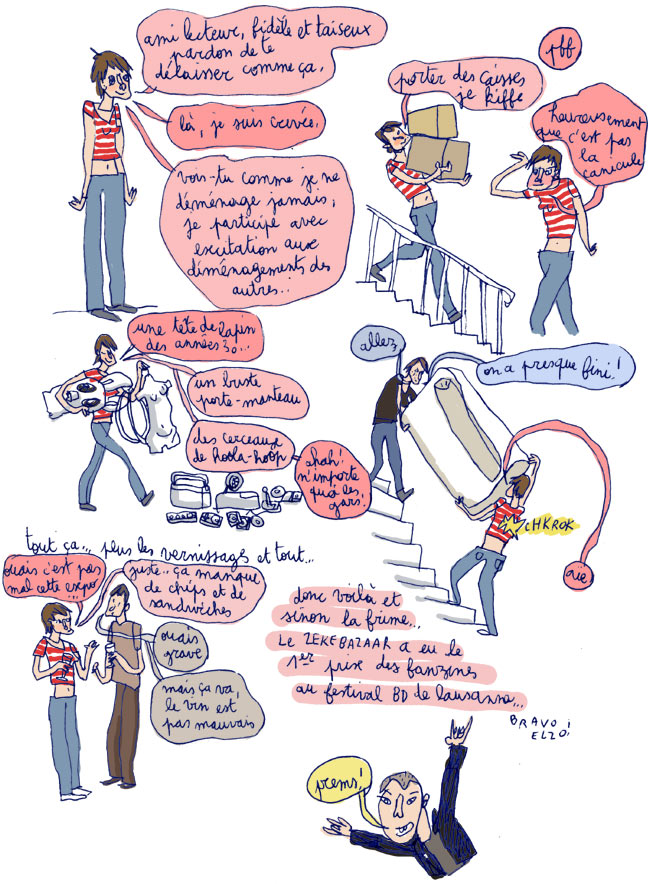 ami lecteur, fidèle et taiseux
pardon de te
délaisser comme ça.
là, je suis crevée.
vois-tu comme je ne
déménage jamais,
je participe avec
excitation aux
déménagements des
autres..
porter des caisses
je kiffe
pff
heureusement
que c'est pas
la
canicule
une tête de lapin
des années 30..
un buste
porte-manteau
des cerceaux
de hoola-hoop
ahah!
n'importe
quoi les
gars!
allez
on a presque fini!
CHKROK
aïe
tout ça... plus les vernissages et tout...
ouais c'est pas
mal cette expo
juste.. ça manque
de chips et de
sandwiches
ouais
grave
mais ça va,
le vin est
pas mauvais
donc voilà et
sinon la frime...
LE ZEKEBAZAAR a eu le
1er prix des fanzines
au festival BD de Lausanne...
BRAVO
ELZO!
prems!